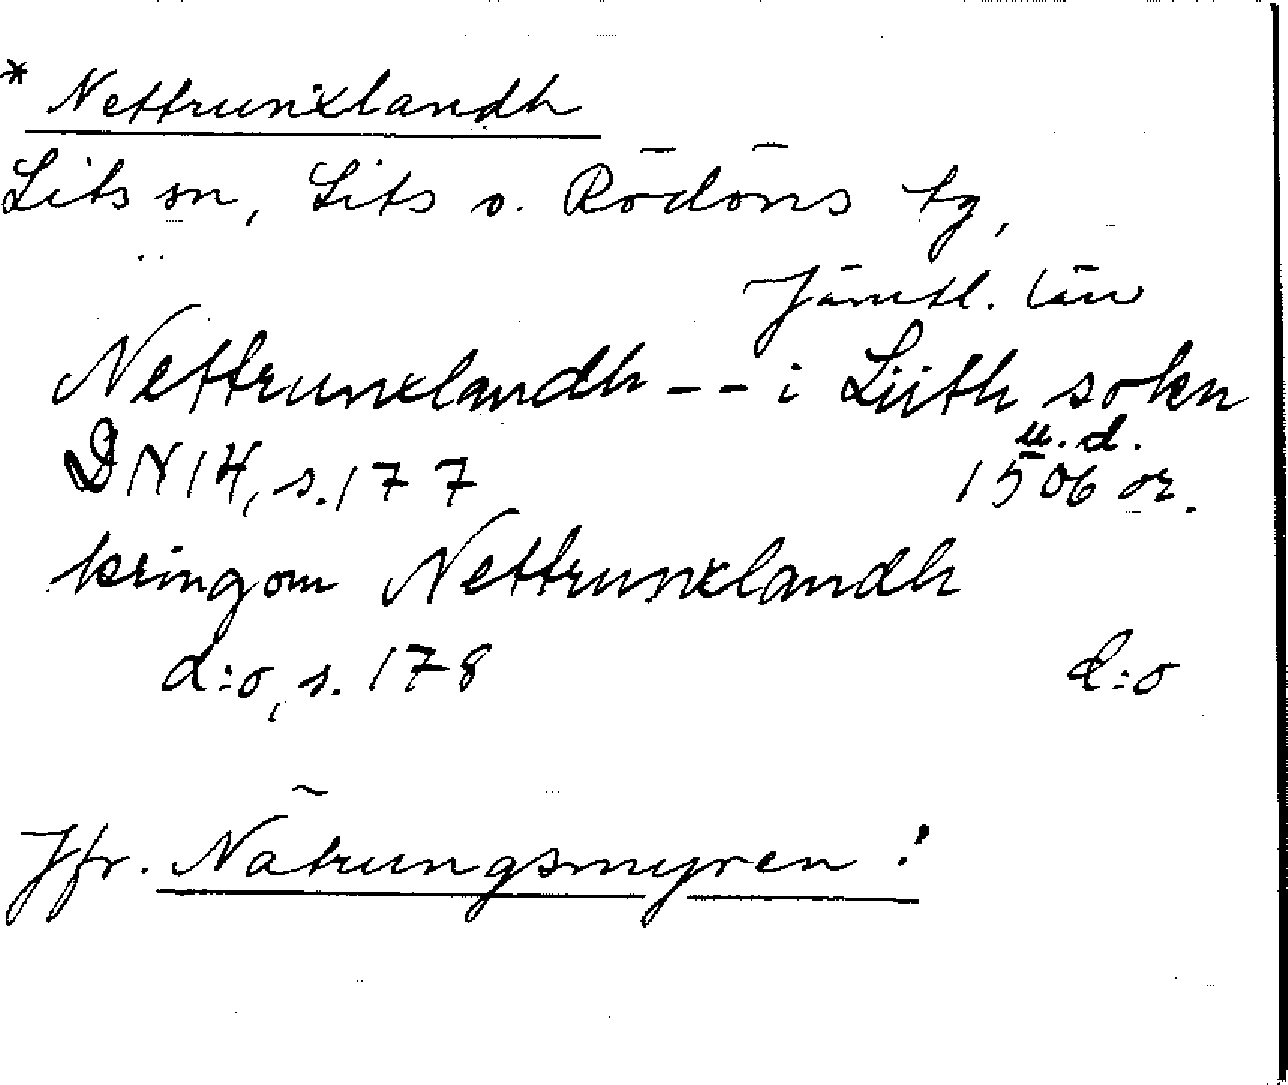 * Nettrunxlandh
Lits sn, Lits o. Rödöns tg,
Jämtl. län
Nettrunxlandh -- i Liith sokn
u.d.
DN 14, s. 177 1506 or.
kringom Nettrunxlandh
d:o, s. 178 d:o
Jfr. Nätrungsmyren !